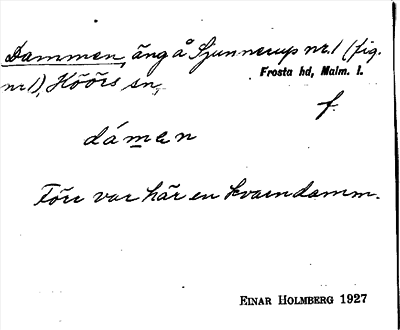 Dammen, äng å Sjunnerup nr. 1 (fig.
nr 1), Höörs sn,
Frosta hd, Malm. l.
f.
dámen
Förr var här en kvarndamm.
EINAR HOLMBERG 1927